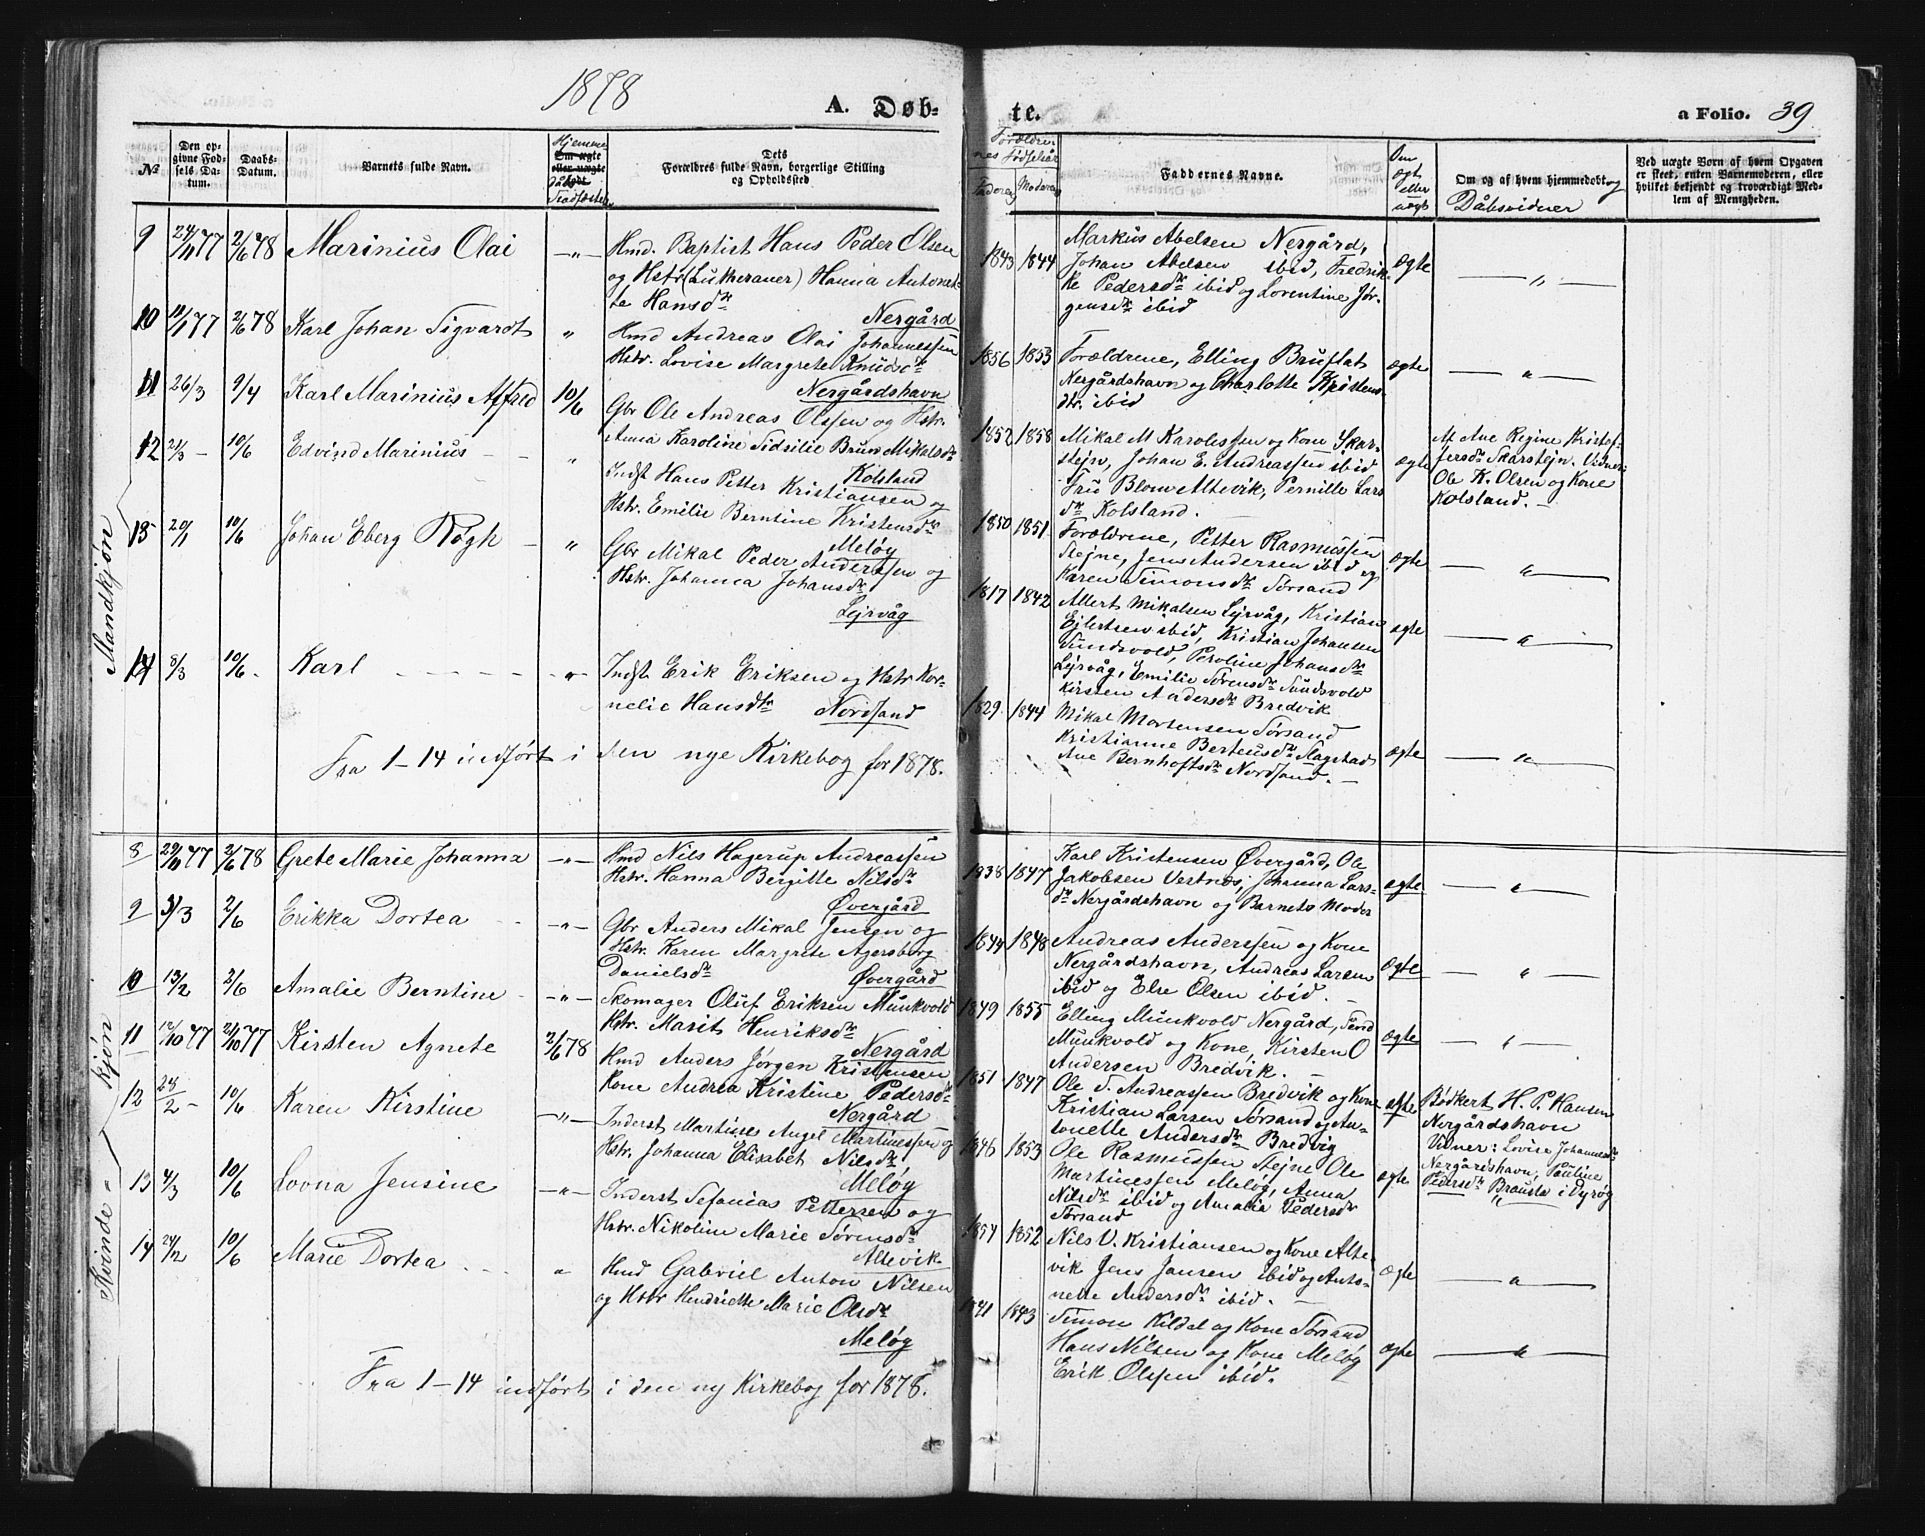 1878
A. Døb-
te.
a Folio. 39
№
Den op-
givne Fød-
sels Da-
tum.
Daabs-
Datum.
Barnets fulde Navn.
Hjemme
Om ægte
eller uægte
født
dåb
Stadfæstet
Dets
Forældres fulde Navn, borgerlige Stilling
og Opholdssted
Forældre-
nes Fødselsår
Faderens
Moderens
Faddernes Navne.
Om
ægte
eller
uægte
Om og af hvem hjemmedøbt og
Dåbsvidner
Ved uægte Børn af hvem Opgaven
er skeet, enten Barnemoderen, eller
hvilket bekjendt og troværdigt Med-
lem af Menigheden.
Mandkjøn
9 24/11 77 2/6 78 Marinius Olai —〃—
Hmd. Baptist Hans Peder Olsen
og Hstr (Lutheraner) Hanna Antonet-
te Hansdtr
Nergård
1843 1844
Markus Abelsen Nergård,
Johan Abelsen ibid, Fredrik-
ke Pedersdtr ibid og Lorentine Jør-
gensdtr ibid
ægte —〃—
10 10/11 77 2/6 78 Karl Johan Sigvardt 〃
Hmd Andreas Olai Johannessen
Hstr. Lovise Margrete Knudsdtr
Nergårdshavn
1856 1853
Forældrene, Elling Bruflat
Nergårdshavn og Charlotte Kristens-
dtr. ibid
ægte —〃—
11 26/3 9/4 Karl Marinius Alfred 10/6
Gbr Ole Andreas Olssen og Hstr.
Anna Karoline Sidsilie Brun Mikalsdtr
Kolsland
1852 1858
Mikal M Karolessen og Kone Skar-
stejn, Johan E. Andreassen ibid
Fru Blom Altevik, Pernille Lars
dtr Kolsland. —
ægte
Af Ane Regine Kristof-
fersdtr Skarstejn. Vidner:
Ole K. Olsen og Kone
Kolsland. —
12 21/3 — 10/6 Edvind Marinius — — 〃
Indst Hans Petter Kristiansen og
Hstr. Emilie Berntine Kristensdtr
Meløy
1850 1851
Forældrene, Petter Rasmussen
Stejne, Jens Andersen ibid og
Karen Simonsdtr Sørsand
ægte —〃—
13 20/1 10/6 Johan Eberg Røgh — 〃
Gbr Mikal Peder Anderssen og
Hstr. Johanna Johansdtr
Lejrvåg
1817 1842
Albert Mikalsen Lejrvåg, Kristian
Ejlertsen ibid, Kristian Johansen
Sundsvold, Peroline Johansdtr
Lejrvåg, Emilie Sørensdtr Sundsvold
Kirsten Andersdtr Bredvik
ægte —〃—
14 8/3 10/6. Karl — — — —〃—
Indst Erik Eriksen og Hstr Kor-
nelie Hansdtr Nordsand
1829. 1844
Mikal Mortensen Sørsand
Kristianne Berteusdtr Slagstad
Ane Bernhoftsdtr Nordsand. —
ægte —〃—
Fra 1-14 indført i den nye Kirkebog for 1878.
Kvinde-kjøn
8 29/11 77 2/6 78 Grete Marie Johanna —〃—
Hmd Nils Hagerup Andreassen
Hstr. Hanna Bergitte Nilsdtr
Øvergård
1838 1847
Karl Kristensen Øvergård, Ole
Jakobsen Vestnes, Johanna Lars-
dtr Nergårdshavn og Barnets Moder
ægte —〃—
9 3/3 2/6 Erikka Dortea —〃—
Gbr Anders Mikal Jensen og
Hstr. Karen Margrete Agersborg
Danielsdtr Øvergård
1844 1848
Andreas Anderssen og Kone
Nergårdshavn, Andreas Larsen
ibid og Else Olsen ibid. —
ægte —〃—
10 13/2 2/6 Amalie Berntine —〃—
Skomager Oluf Eriksen Munkvold
Hstr. Marit Henriksdtr
Nergård
1849 1855
Elling Munkvold Nergård, Send
Munkvold og Kone, Kirsten O
Andersen Bredvik. —
ægte —〃—
11 12/10 77 21/10 77 Kirsten Agnete 2/6 78
Hmd Anders Jørgen Kristensen
Kone Andrea Kristine Pedersdtr
Nergård
1851 1847
Ole S. Andreassen Bredvik og Kone
Kristian Larsen Sørsand og An-
tonette Andersdtr Bredvig
ægte
Bødkert H. P. Hansen
Nergårdshavn
Vidner: Lovise Johannesdtr
Nergårdshavn, Pauline
Pedersdtr Brausta i Dyrøy
12 28/2 — 10/6 Karen Kirstine —〃—
Inderst Martines Angel Martinessen og
Hstr. Johanna Elisabet Nilsdtr
Meløy
1846 1853
Ole Rasmussen Stejne Ole
Martinessen Meløy, Anna
Nilsdtr ibid og Amalia Pedersdtr
Sørsand
ægte 〃
13 4/3 10/6 Lovna Jensine —〃—
Inderst Sefanias Pettersen og
Hstr. Nikoline Marie Sørensdtr
Altevik
1857 1852
Nils V. Kristiansen og Kone Alte-
vik Jens Jansen ibid og Anto-
nette Andersdtr ibid. —
ægte —〃—
14 24/2 10/6 Marie Dortea 〃
Hmd Gabriel Anton Nilsen
og Hstr Hendriette Marie Olsdtr
Meløy
1841 1843
Simon Kildal og Kone Sørsand
Hans Nilsen og Kone Meløy
Erik Olssen ibid.
ægte —〃—
Fra 1-14 indført i den ny Kirkebog for 1878.